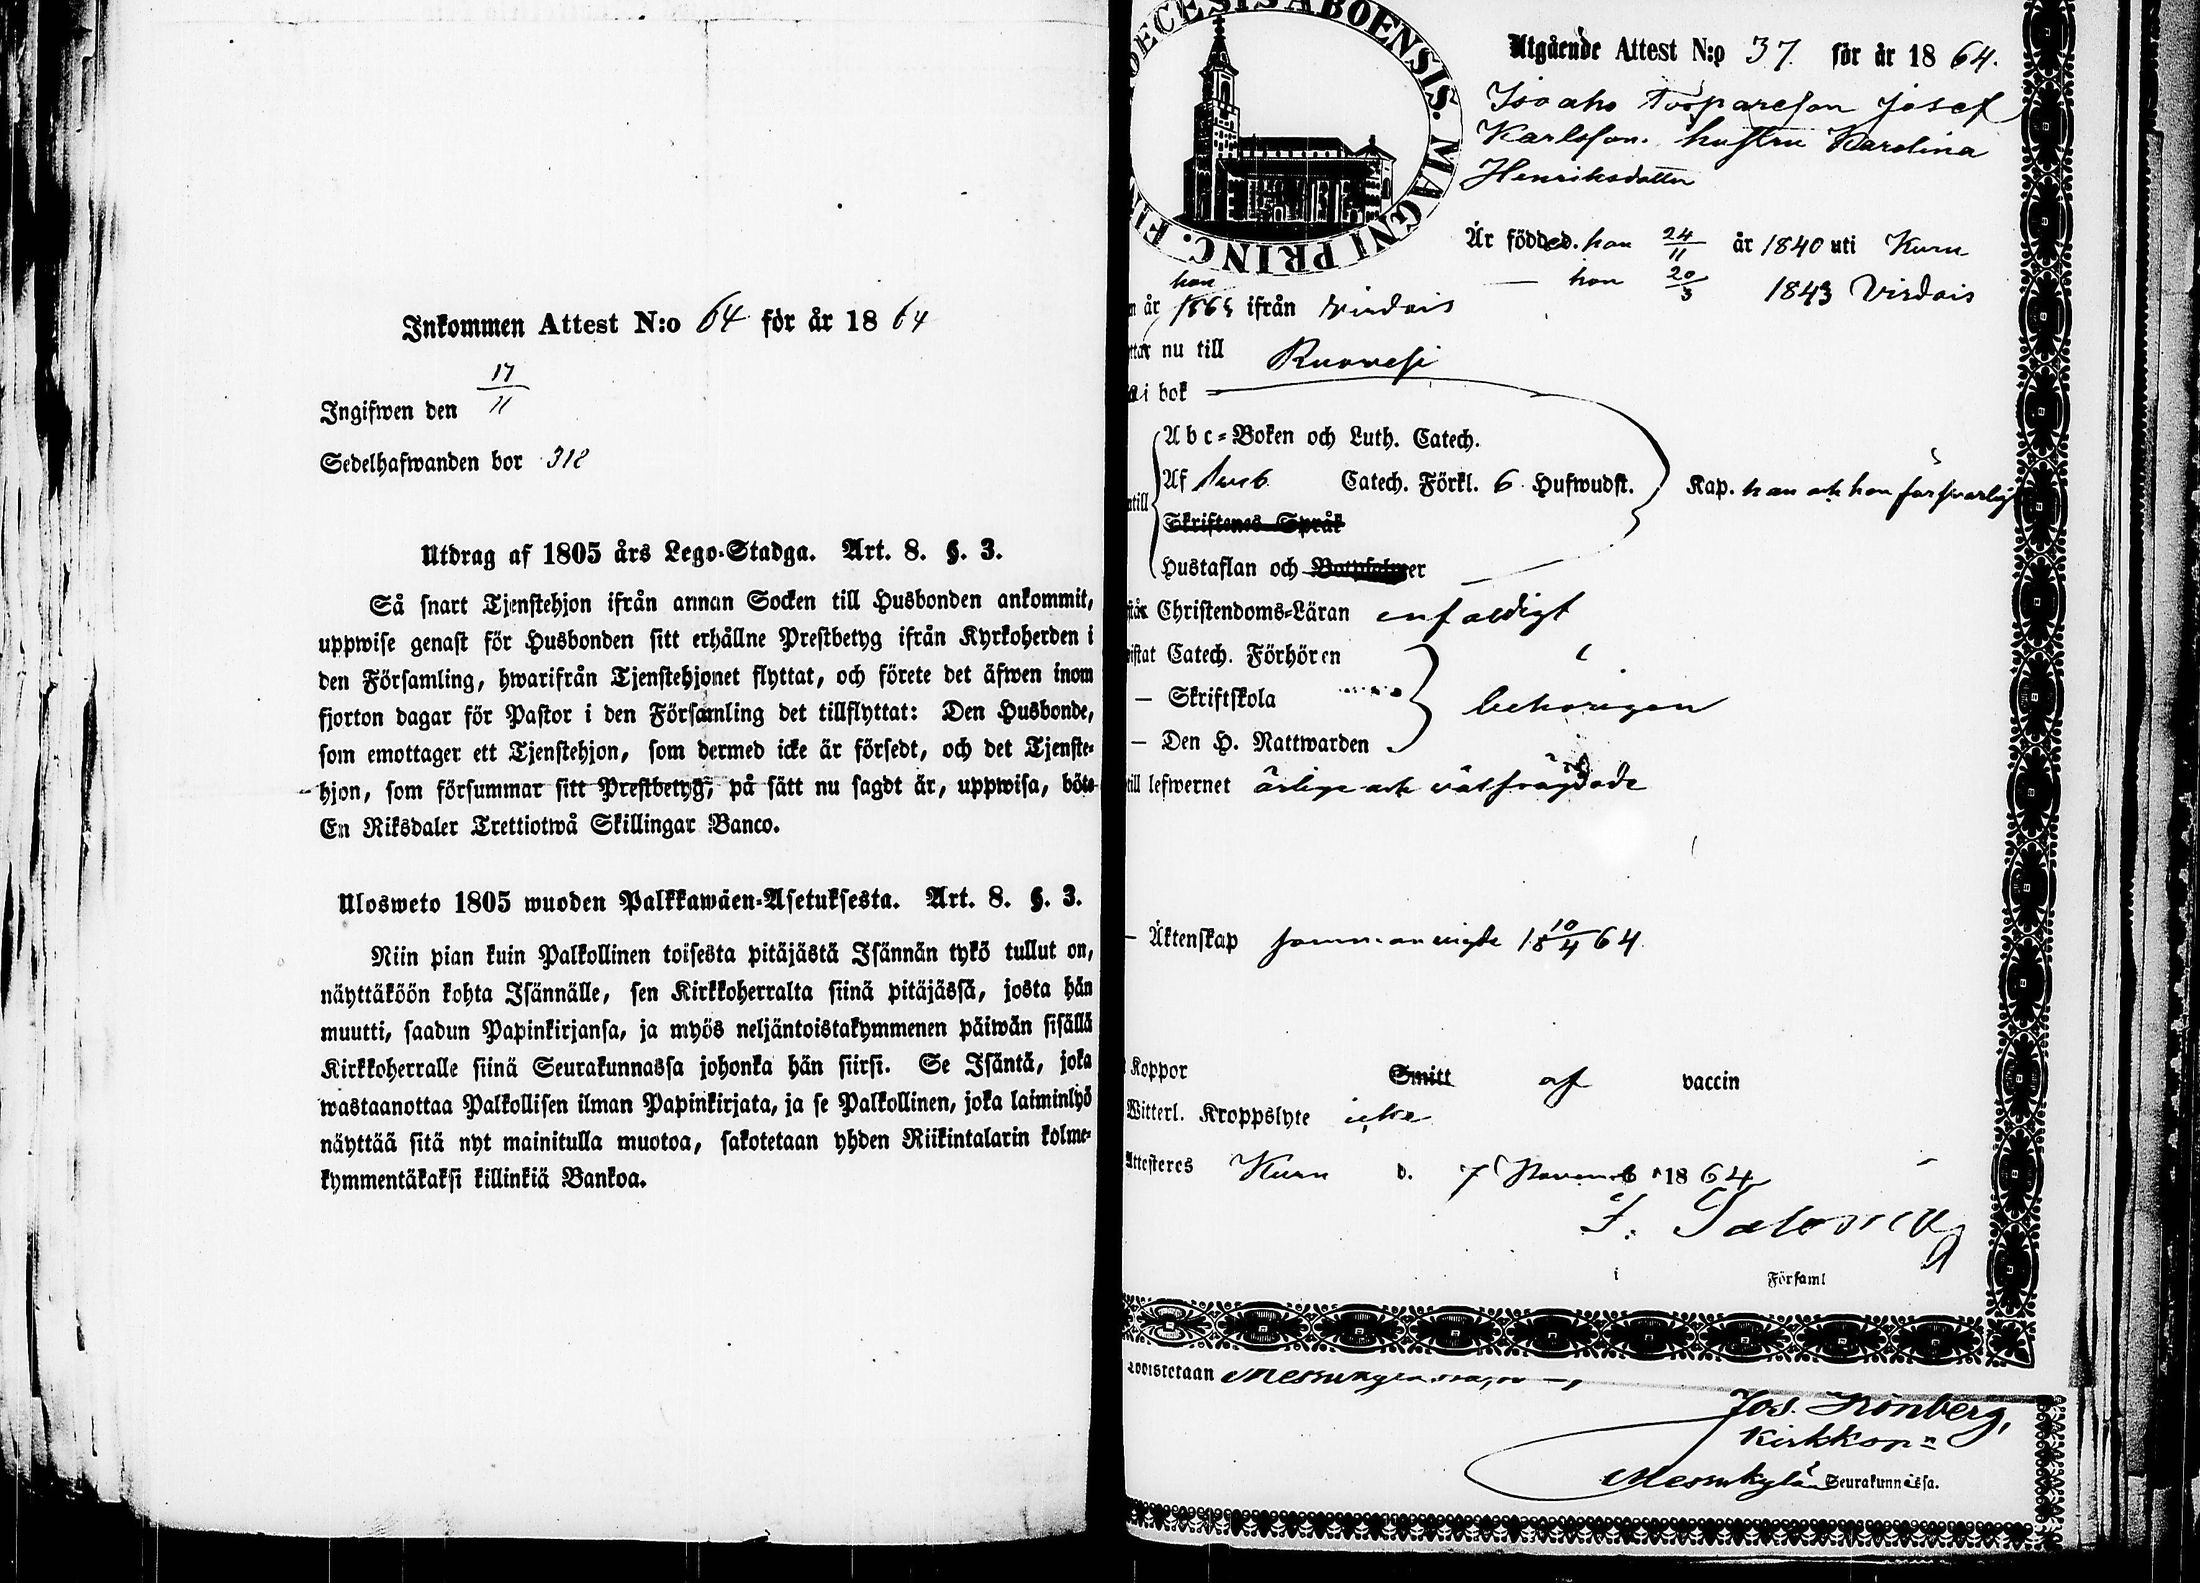 Inkommen Attest N:o 64 för år 1864
17
11
Ingifwen den
Sedelhafwanden bor 312
Utdrag af 1805 års Lego-Stadga. Art. 8. §. 3.
Så snart Tjenstehjon ifrån annan Socken till Husbonden ankommit,
uppwise genast för Husbonden sitt erhållne Prestbetyg ifrån Kyrkoherden i
den Församling, hwarifrån Tjenstehjonet flyttat, och förete det äfwen inom
fjorton dagar för Pastor i den Församling det tillflyttat: Den Husbonde,
som emottager ett Tjenstehjon, som dermed icke är försedt, och det Tjenste-
hjon, som försummar sitt Prestbetyg, på sätt nu sagdt är, uppwisa, böte
En Riksdaler Trettiotwå Skillingar Banco.
Ulosweto 1805 wuoden Palkkawäen-Asetuksesta. Art. 8. §. 3.
Niin pian kuin Palkollinen toisesta pitäjästä Isännän tykö tullut on,
näyttäköön kohta Isännälle, sen Kirkkoherralta siinä pitäjässä, josta hän
muutti, saadun Papinkirjansa, ja myös neljäntoistakymmenen päiwän sisällä
Kirkkoherralle siinä Seurakunnassa johonka hän siirsi. Se Isäntä, joka
wastaanottaa Palkollisen ilman Papinkirjata, ja se Palkollinen, joka laiminlyö
näyttää sitä nyt mainitulla muotoa, sakotetaan yhden Riikintalarin kolme-
kymmentäkaksi killinkiä Bankoa.
ŒCESIS ABOENSIS. MAGNI PRINC. FI
Utgående Attest N:o 37 för år 1864.
Isoaho Josef
Karlsson. hustru Karolina
Henriksdotter
Är född d. han 24/11 år 1840 uti Kuru
— hon 20/3 1843 Virdois
hon
år ifrån Virdois
nu till Ruovesi
i bok
Abc-Boken och Luth. Catech.
Af Catech. Förkl. 6 Hufwudst. Kap. han och hon försvarligt
Skriftenes Språk
Hustaflan och Botpsalmer
Christendoms-Läran enfaldigt
Catech. Förhören
— Skriftskola behörigen
— Den H. Nattwarden
till lefwernet ärlige och välfrägdade
— Äktenskap sammanvigde 18 10/4 64
Koppor Smitt af vaccin
Witterl. Kroppslyte icke
Attesteres Kuru d. 7 Novemb 1864
i Församl
Messukylän
Kirkkoh
Messukylän Seurakunnassa.